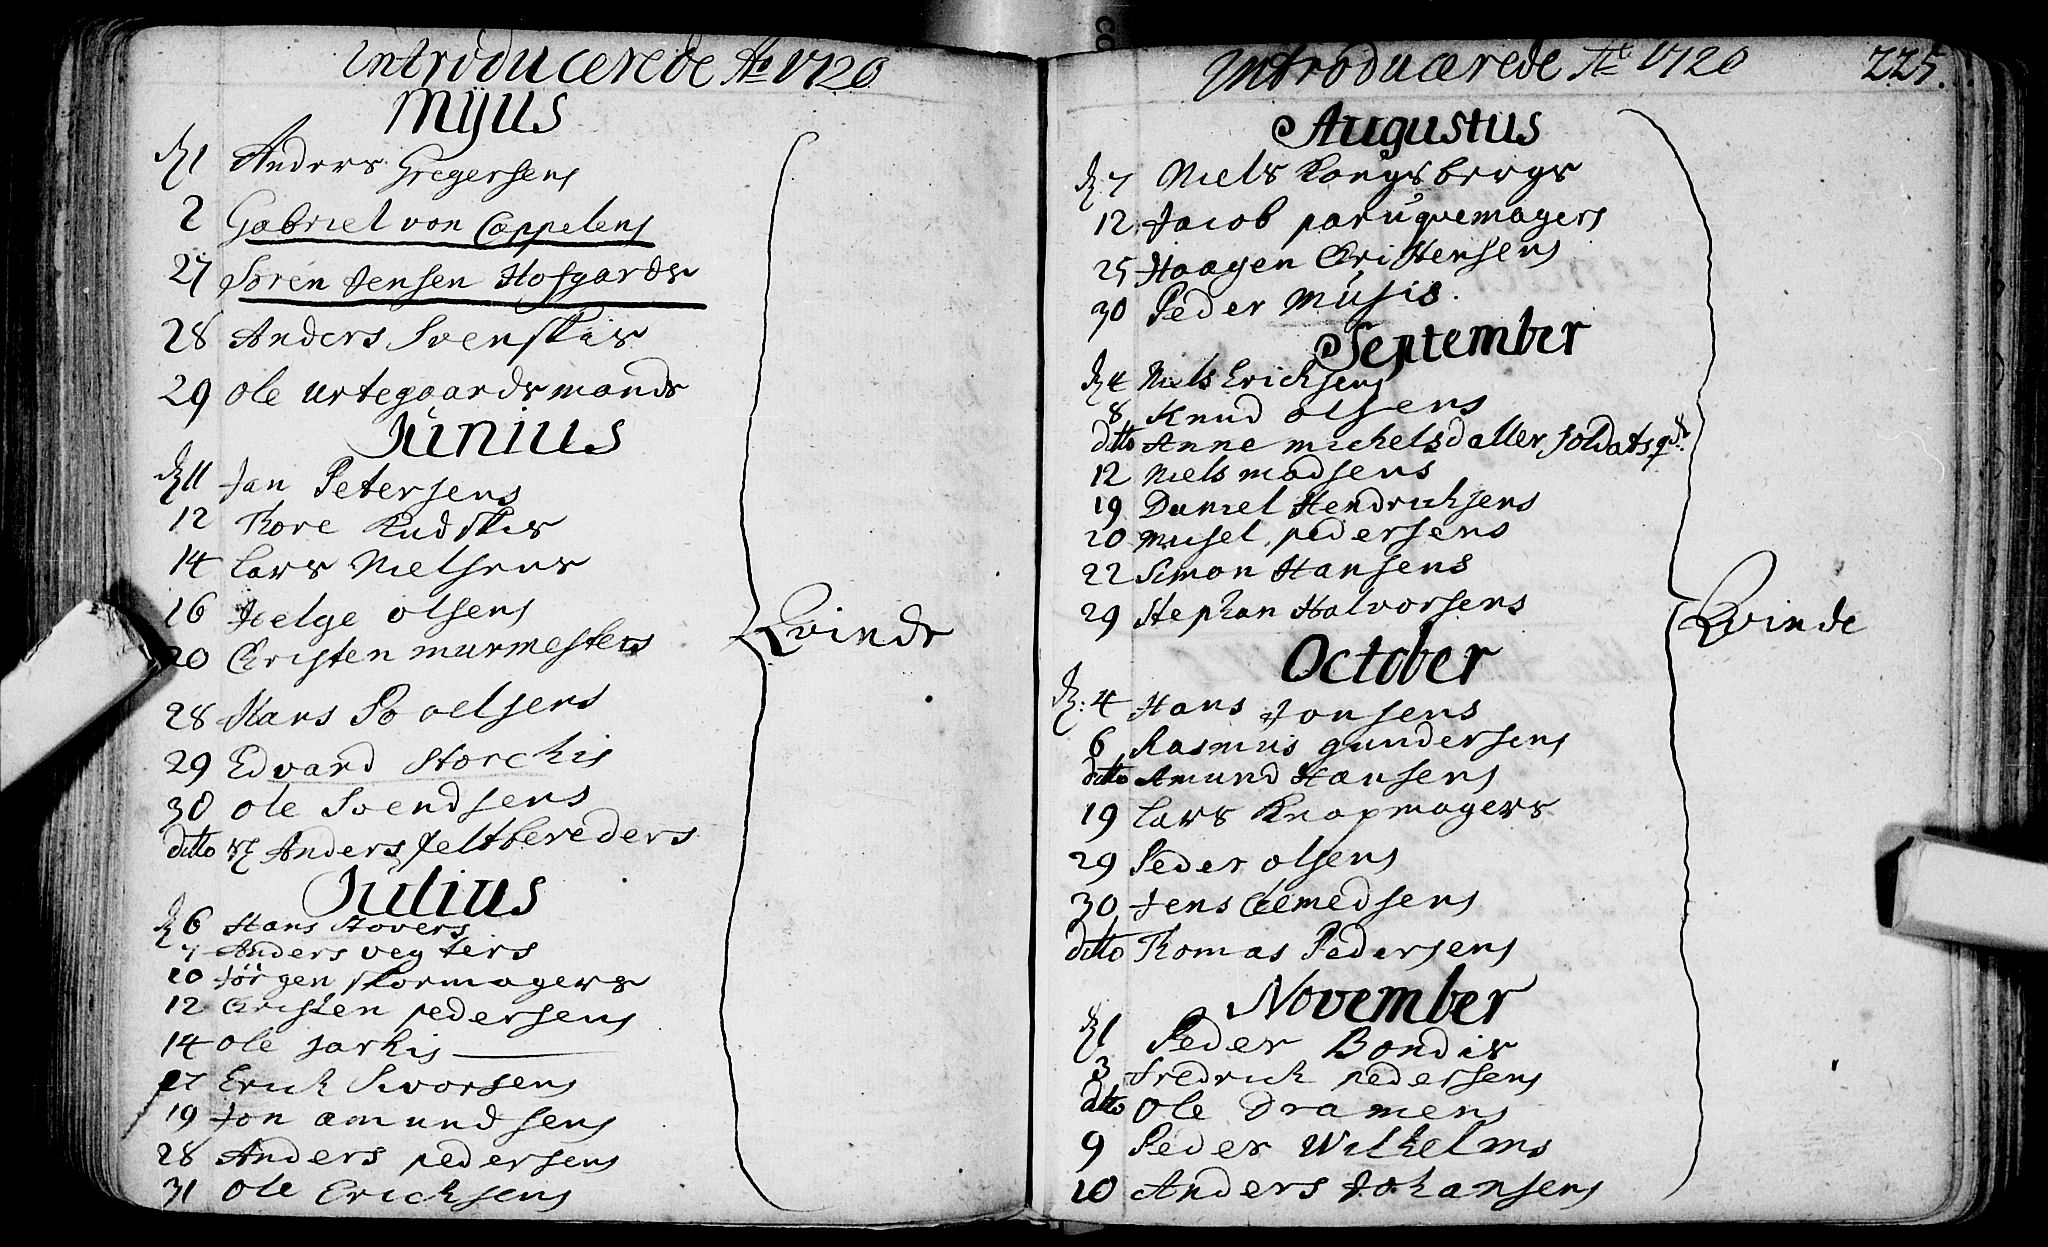 Introducerede Ao 1720
Mijus
d 1 Anders Gregersens
2 Gabriel von Cappelens
27 Sören Jensen Hofgards
28 Anders Svenskis
29 Ole urtegaardsmands
Junius
d 11 Jan Petersens
12 Thore Kudskis
14 Lars Nielsens
16 Helge olsens
20 Christen murmesters
28 Hans Povelsens
29 Edvard Storckis
30 Ole Svendsens
ditto Anders feltbereders
Julius
d 6 Hans Stovers
7 Anders vegters
10 Jörgen skormagers
12 Christen pedersens
14 Ole Jarkis
17 Erick Sivorsens
19 Jon amundsens
28 Anders pedersens
31 Ole Ericksens
Qvinde
Introducerede Ao 1720 225.
Augustus
d 7 Niels Kongsbergs
12 Jacob paruqvemagers
25 Haagen Christensens
30 Peder Musis.
September
d 4 Niels Ericksens
8 Knud olsens
ditto Anne michelsdatter, soldatsq
12 Niels madsens
19 Daniel Hendrichsens
20 Misel pedersens
22 Simon Hansens
29 Stephan Halvorsens
October
d: 4 Hans Jonsens
6 Rasmus gundersens
ditto Amund Hansens
19 Lars Knapmagers
29 Peder olsens
30 Jens Clemedsens
ditto Thomas Pedersens
November
d 1 Peder Bondis
3 Fredrick pedersens
ditto Ole Dramens
9 Peder Wilhelms
10 Anders Johansens
Qvinde